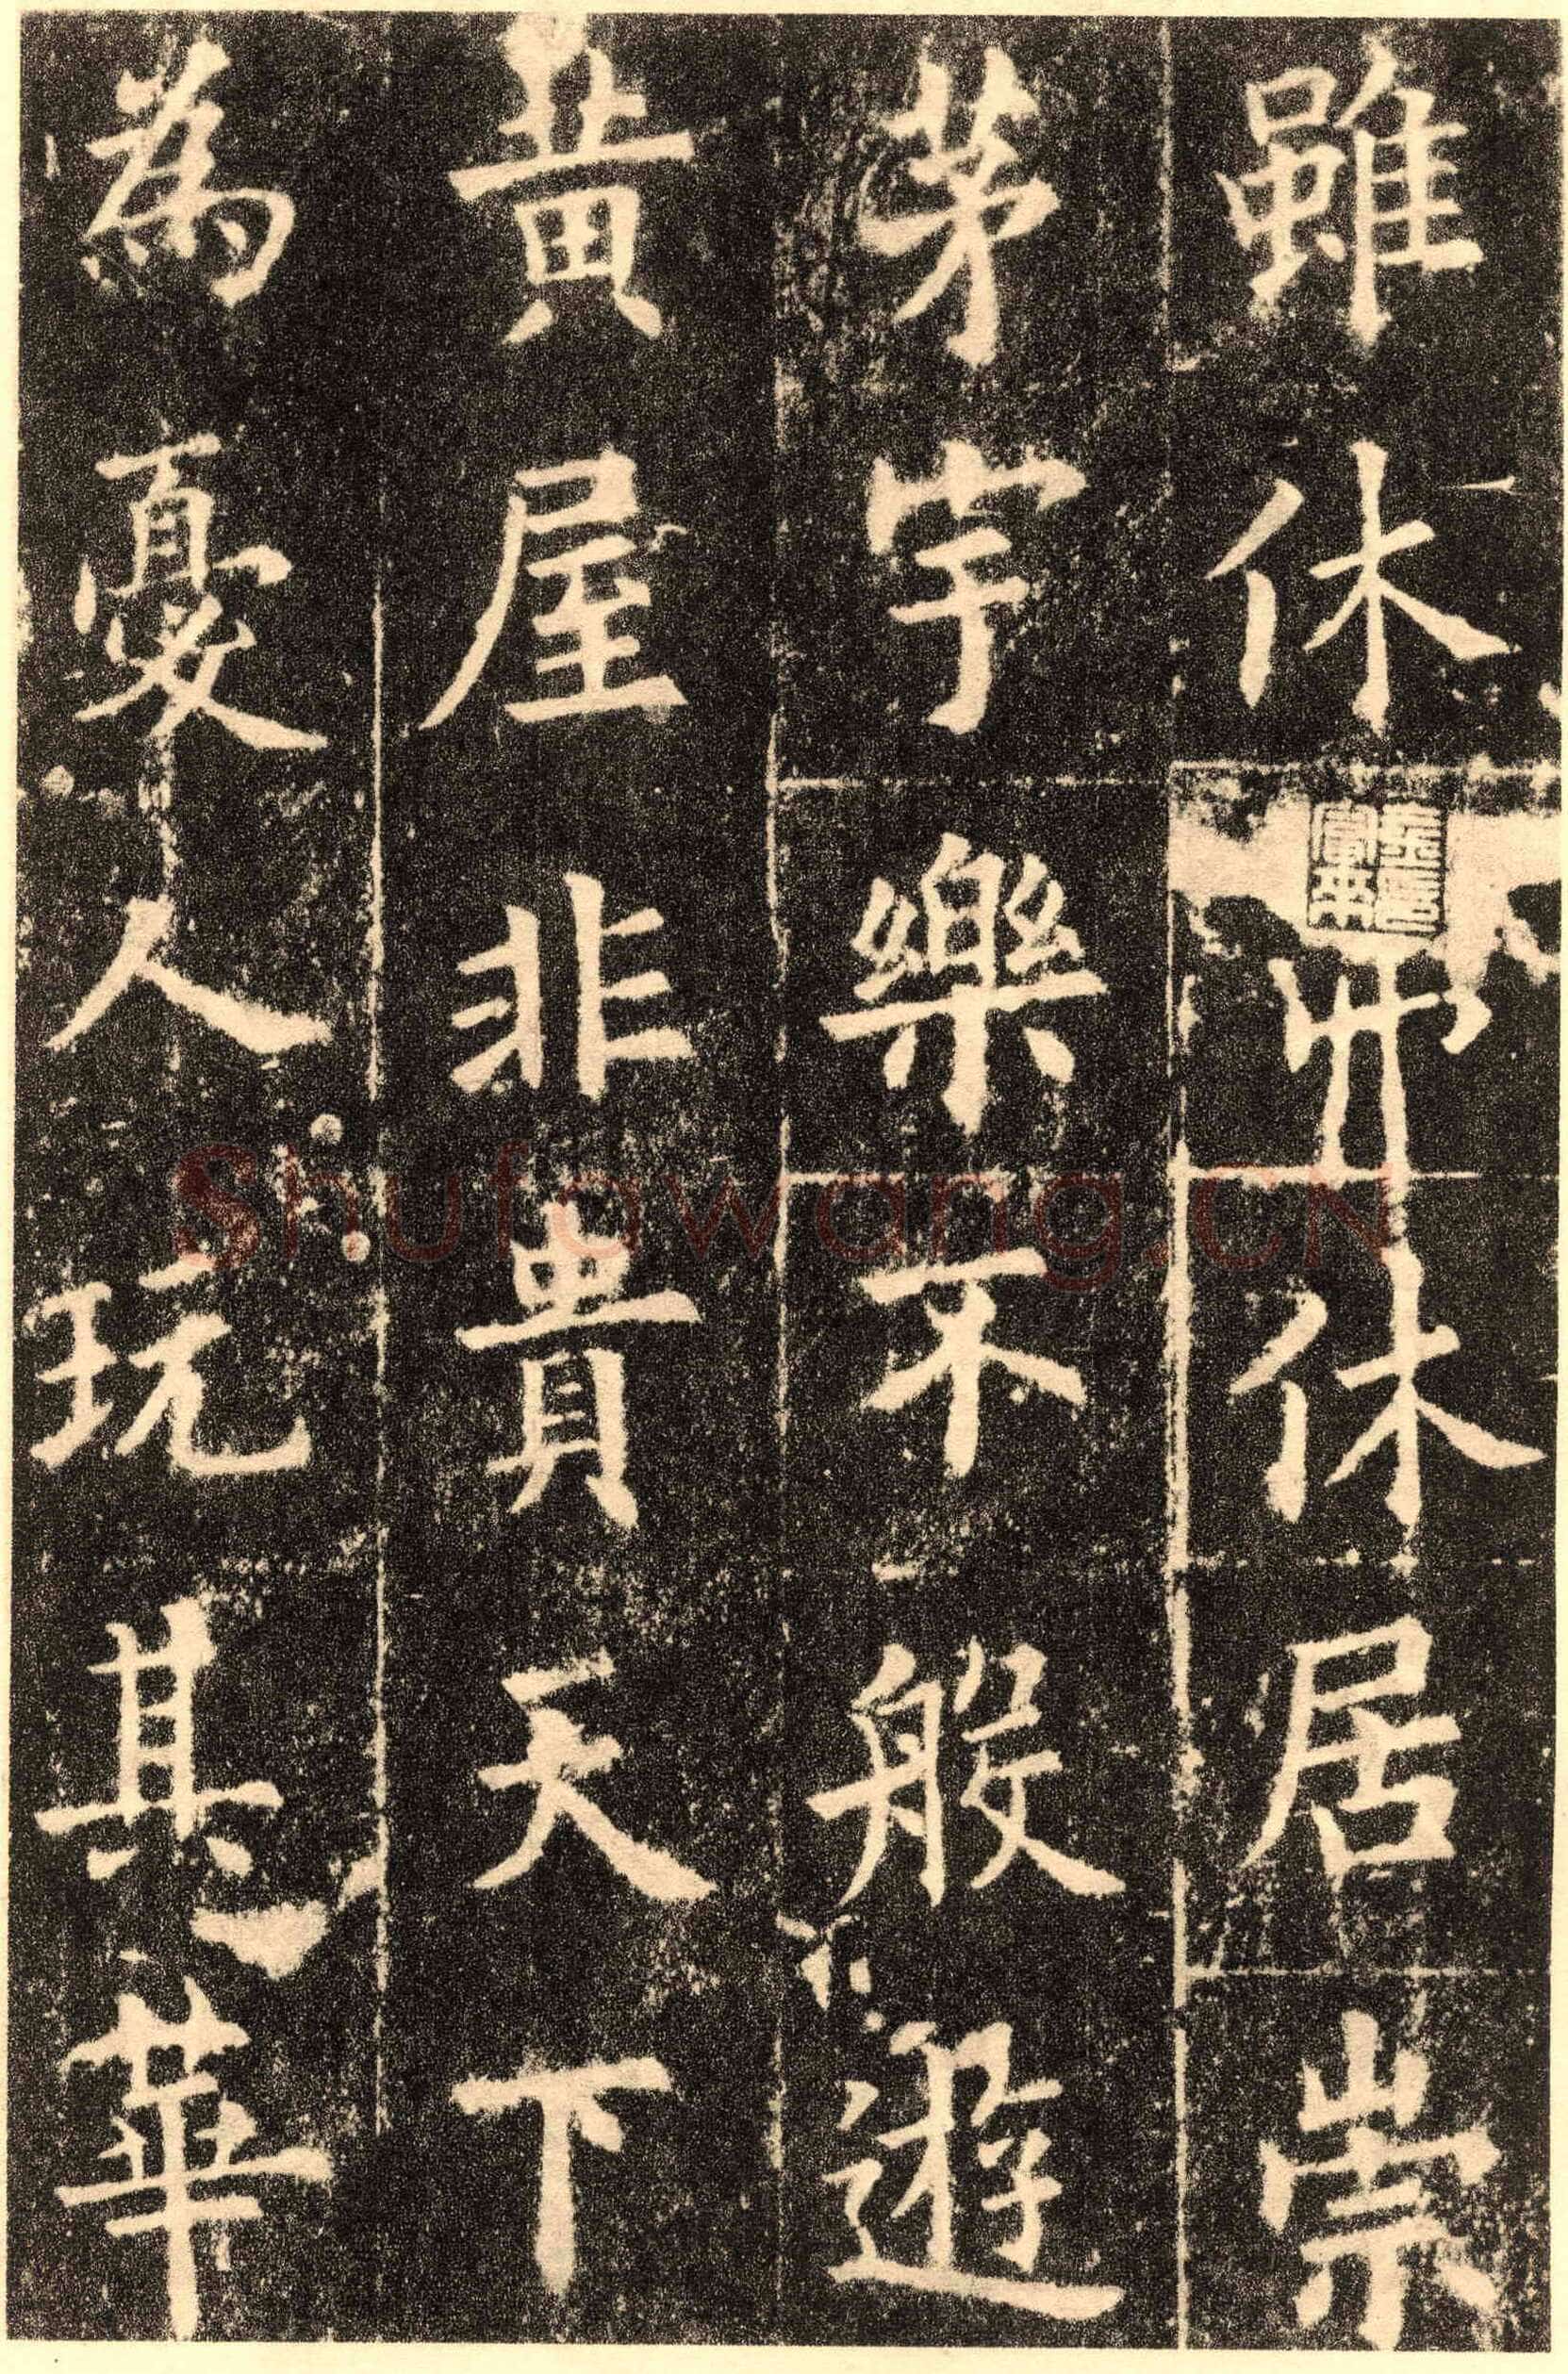 雖休弗休居崇
茅宇樂不般遊
黃屋非貴天下
為憂人玩其華
Shufawang.CN